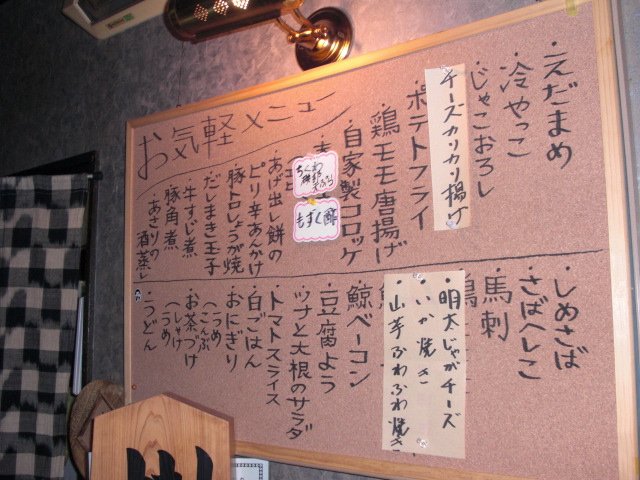 お気軽メニュー
・えだまめ
・冷やっこ
・じゃこおろし
チーズカリカリ揚げ
・ポテトフライ
・鶏モモ唐揚げ
・自家製コロッケ
ちくわ
磯辺
天ぷら
もずく酢
・あげ出し餅の
ピリ辛あんかけ
・豚トロしょうが焼
・だしまき玉子
・牛すじ煮
・豚角煮
・あさりの
酒蒸し
・しめさば
・さばへしこ
・馬刺
・明太じゃがチーズ
・いか焼き
・山芋ふわふわ焼き
・鯨ベーコン
・豆腐よう
・ツナと大根のサラダ
・トマトスライス
・白ごはん
・おにぎり
(うめ
(こんぶ
・お茶づけ
(しゃけ
(うめ
・うどん